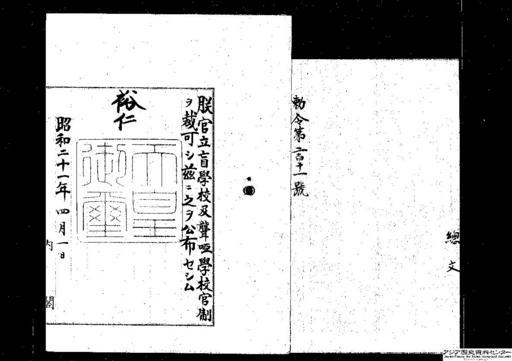 總
文
勅令第二百十一號
朕官立盲學校及聾啞學校官制
ヲ裁可シ茲ニ之ヲ公布セシム
裕仁
天皇
御璽
昭和二十一年四月一日
内閣
アジア歴史資料センター